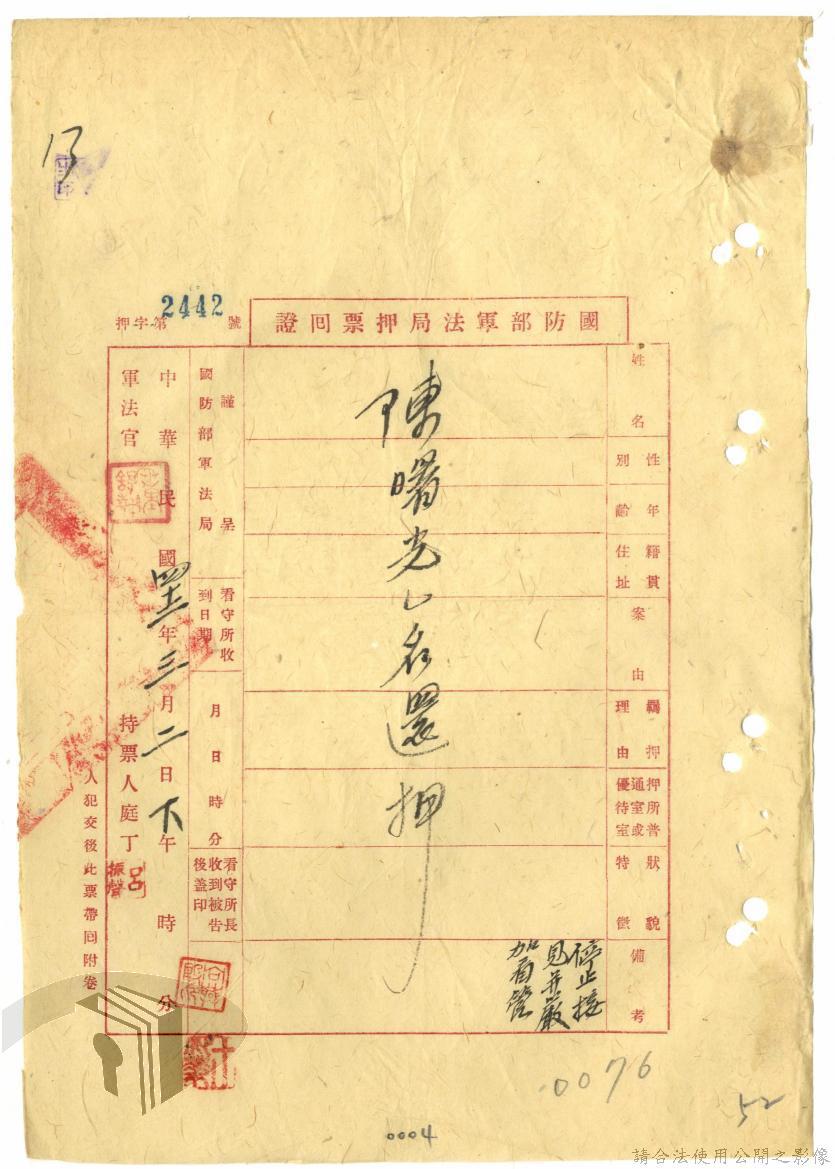 國防部軍法局押票回證
押字第2442號
姓名
性別
年齡
籍貫
住址
案由
羈押理由
押所普通室或優待室
狀貌特徵
備考
停止接
見并嚴
加看管
陳曙光乙名還押
謹呈
國防部軍法局
看守所收到日期
月日時分
看守所長收到被告後蓋印
中華民國四十三年三月二日下午時分
軍法官
持票人庭丁
呂振聲
人犯交後此票帶回附卷
13
0076
52
0004
請合法使用公開之影像